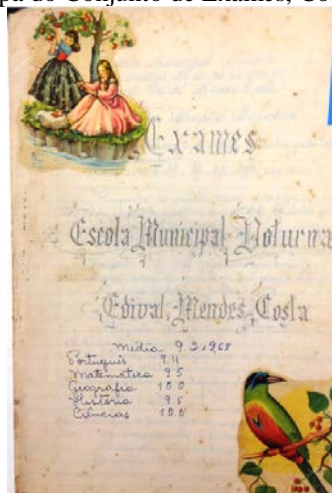 pa do Conjunto de Exames, Co
Exames
Escola Municipal Noturna
Edival Mendes Costa
média 9.2,968
Português
Matemática 9 5
Geografia 10 0
História 9 5
Ciências 10.0